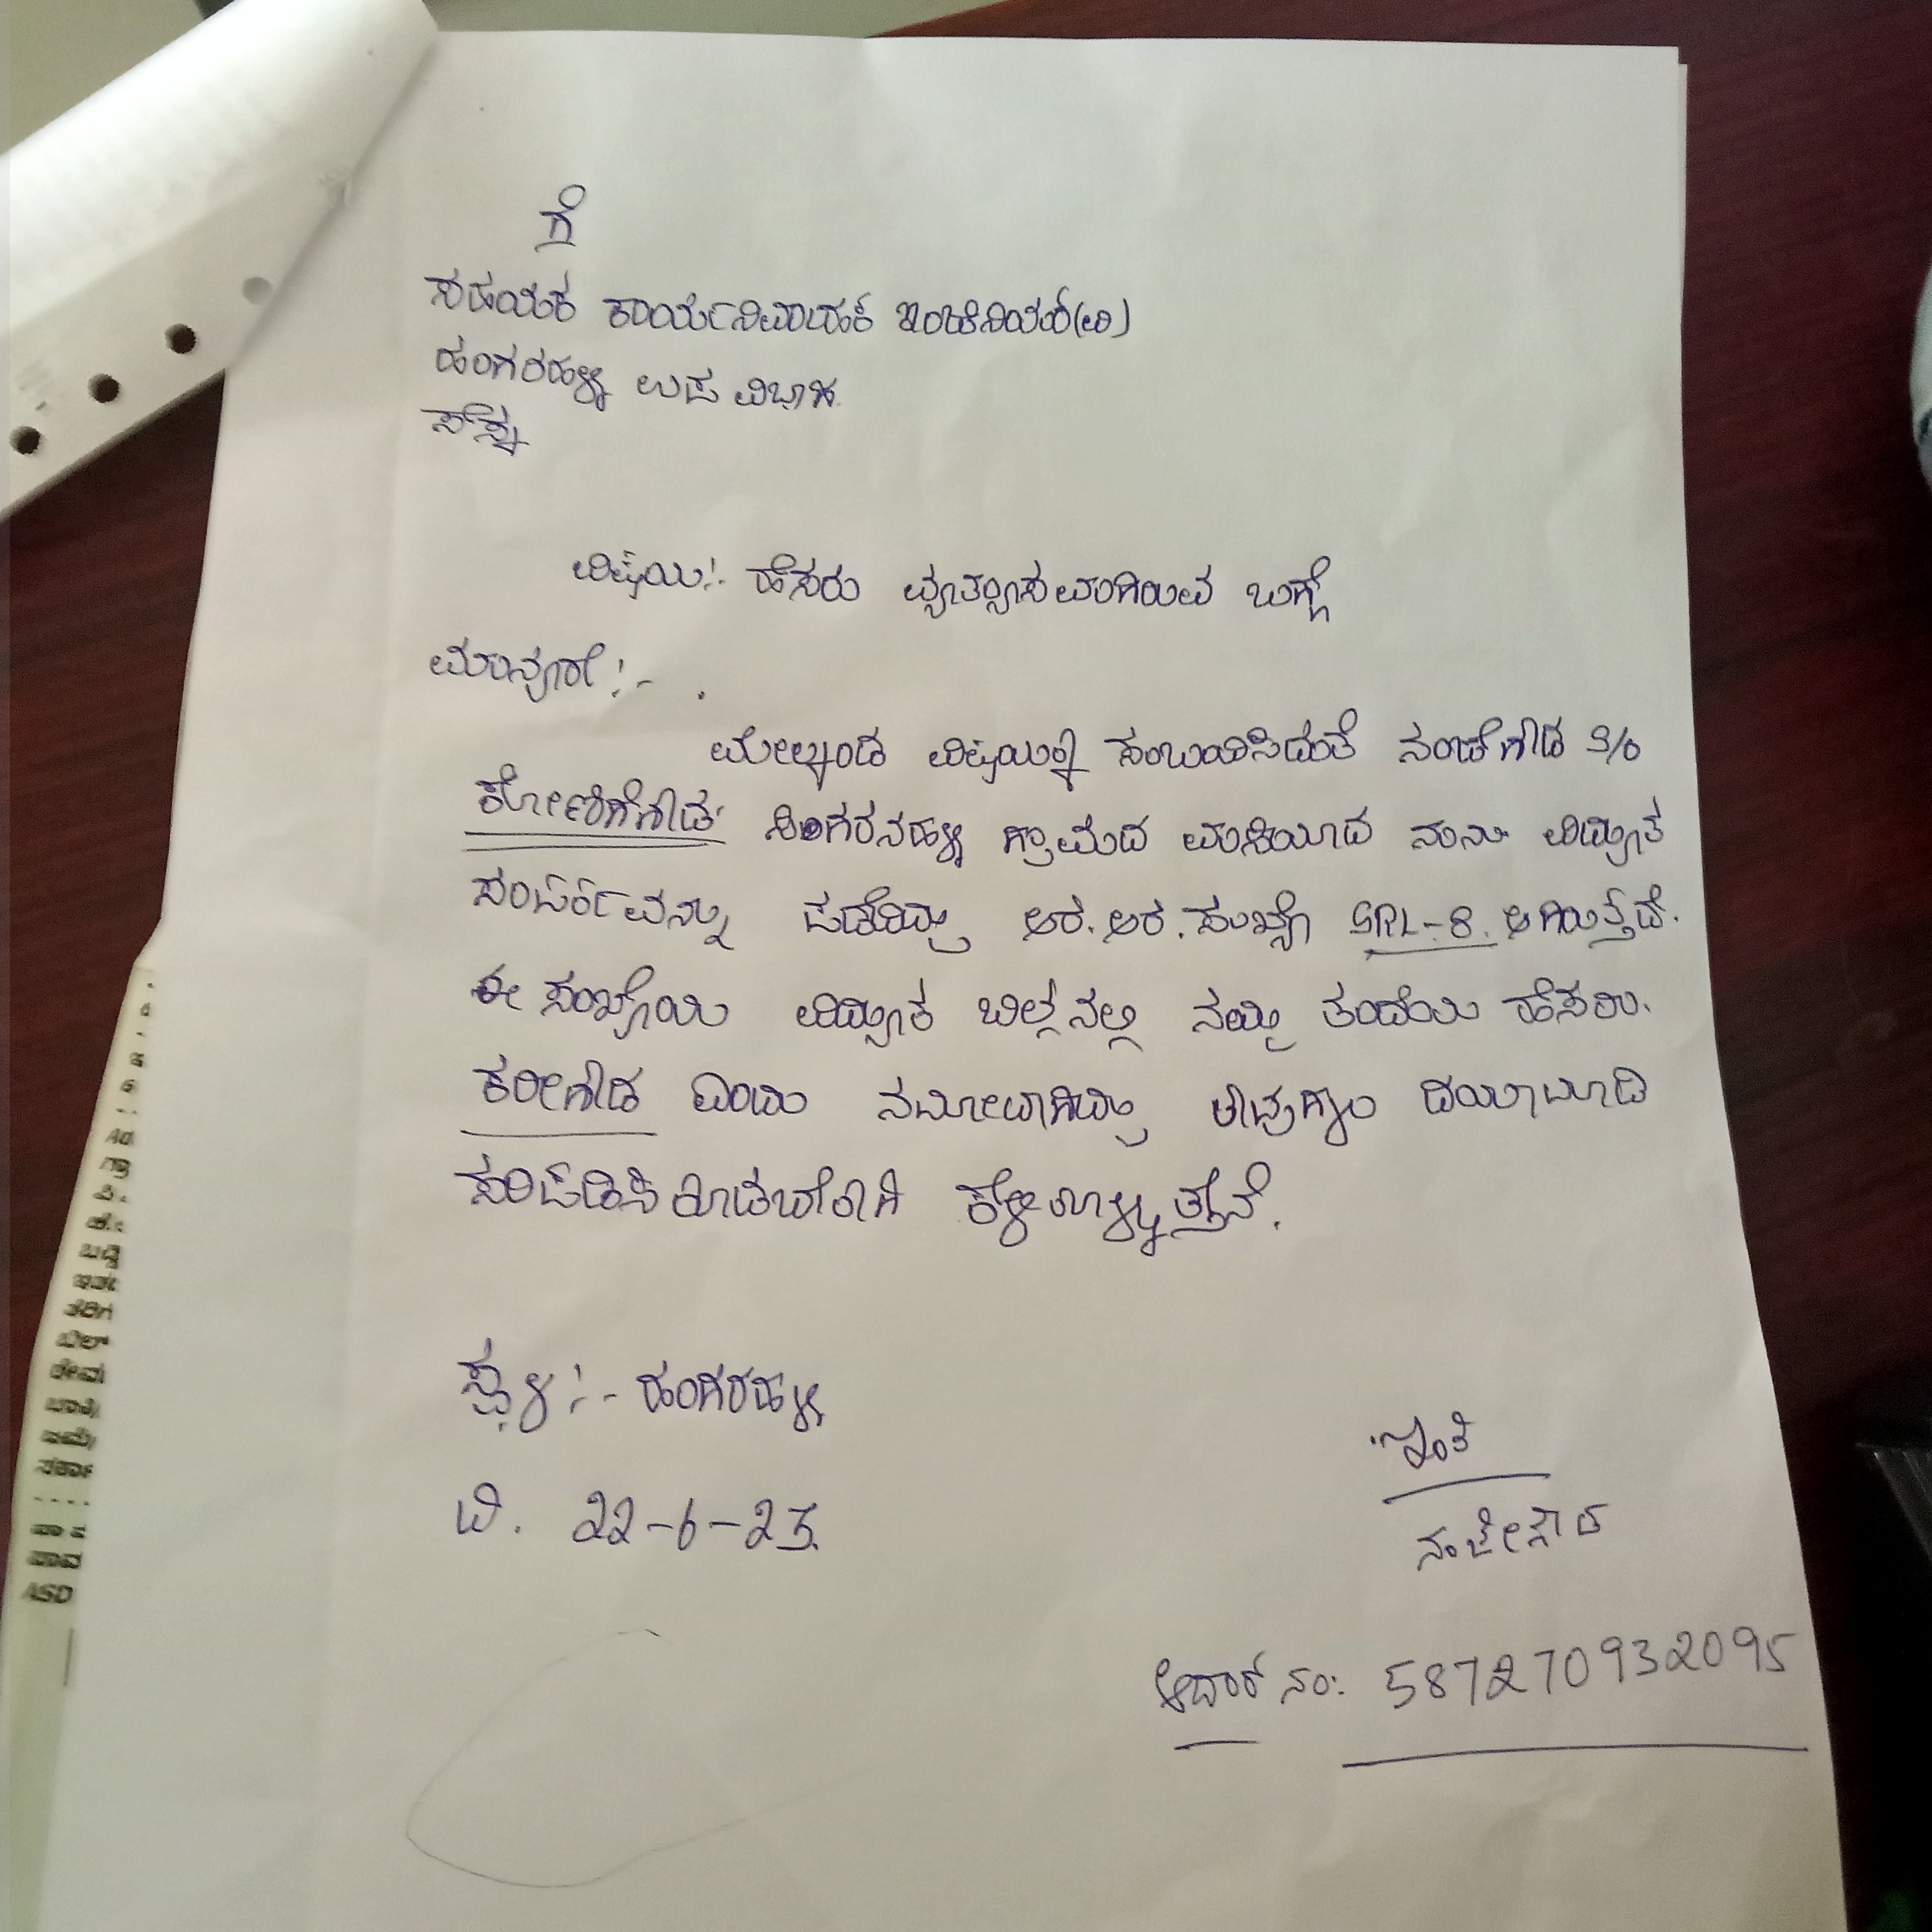 ಗೆ
ಸಹಯಕ ಕಾರ್ಯನಿರ್ವಾಹಕ ಇಂಜಿನಿಯರ್(ವಿ)
ಹಂಗರಹಳ್ಳಿ ಉಪ ವಿಭಾಗ
ವಿಷಯ:- ಹೆಸರು ವ್ಯಾತ್ಯಾಸವಾಗಿರುವ ಬಗ್ಗೆ
ಮಾನ್ಯರೇ:-
ಮೇಲ್ಕಂಡ ವಿಷಯಕ್ಕೆ ಸಂಬಂದಿಸಿದಂತೆ ನಂಜೆಗೌಡ S/o
ಕೋಣೆಗೌಡ ಸಿಂಗರನಹಳ್ಳಿ ಗ್ರಾಮದ ವಾಸಿಯಾದ ನಾನು ವಿದ್ಯುತ
ಸಂಪರ್ಕವನ್ನು ಪಡೆದಿದ್ದು ಆರ.ಆರ.ಸಂಖ್ಯೆ SRL-8. ಆಗಿರುತ್ತದೆ.
ಈ ಸಂಖ್ಯೆಯ ವಿದ್ಯುತ ಬಿಲ್ಲನಲ್ಲಿ ನಮ್ಮ ತಂದೆಯ ಹೆಸರು.
ಕರೀಗೌಡ ಎಂದು ನಮೋದಾಗಿದ್ದು ತಾವುಗಳು ದಯಾಮಾಡಿ
ಸರಿಪಡಿಸಿ ಕೊಡಬೇಕಾಗಿ ಕೇಳಿಕೊಳ್ಳುತ್ತೇನೆ.
ಸ್ಥಳ:- ಹಂಗರಹಳ್ಳಿ
ದಿ. 22-6-23
ಇಂತಿ
ನಂಜೇಗೌಡ
ಆದಾರ್ ನಂ: 587270932095